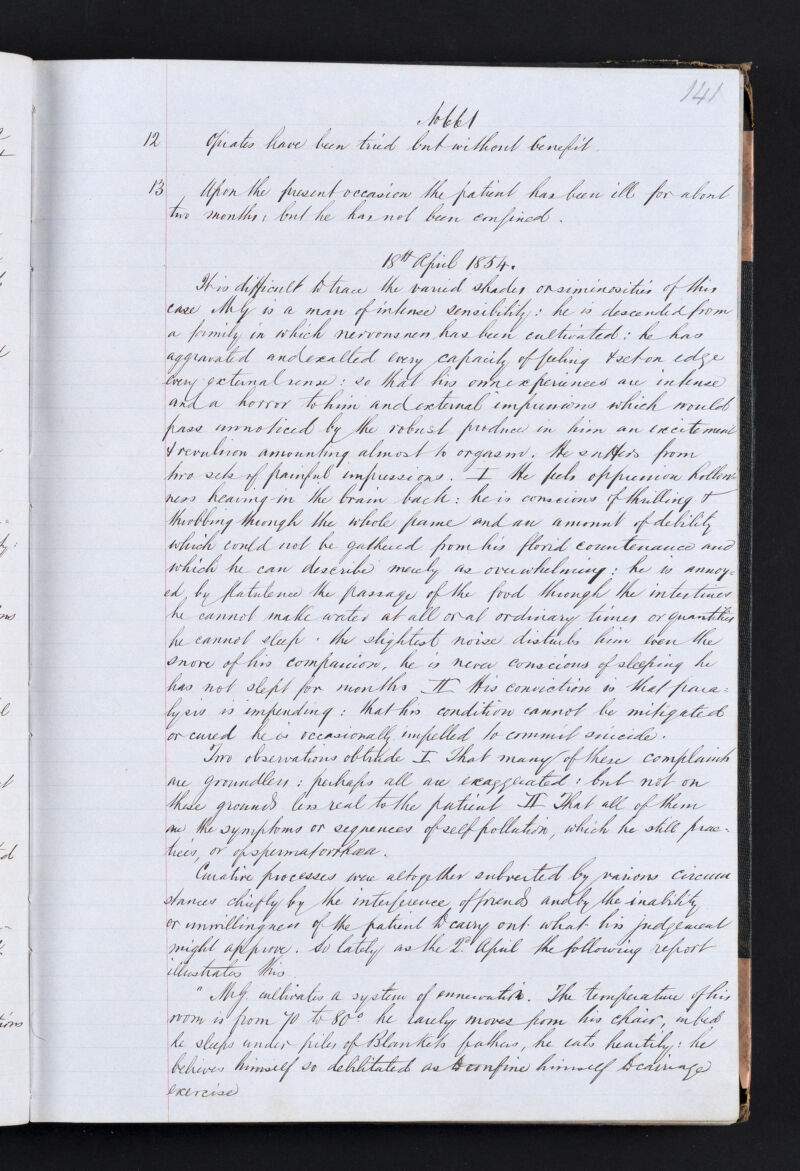 141
No 661
12 Opiates have been tried but without benefit.
13 Upon the present occasion the patient has been ill for about
two months; but he has not been confined.
18th April 1854.
It is difficult to trace the varied shades or siminosities of this
case Mr G is a man of intense sensibility: he is descended from
a family in which nervousness has been cultivated: he has
aggravated and exalted every capacity of feeling & set on edge
every external sense: so that his own experiences are intense
and a horror to him and external impressions which would
pass unnoticed by the robust produce in him an excitement
& revulsion amounting almost to orgasm. He suffers from
two sets of painful impressions. I He feels oppression hollow-
ness heaving in the brain back: he is conscious of thrilling &
throbbing through the whole frame and an amount of debility
which could not be gathered from his florid countenance and
which he can describe merely as overwhelming: he is annoy-
ed by flatulence the passage of the food through the intestines
he cannot make water at all or at ordinary times or quantities
he cannot sleep. the slightest noise disturbs him even the
snore of his companion, he is never conscious of sleeping he
has not slept for months II His conviction is that para-
lysis is impending: that his condition cannot be mitigated
or cured he is occasionally impelled to commit suicide.
Two observations obtrude I That many of these complaints
are groundless; perhaps all are exaggerated: but not on
these grounds less real to the patient II That all of them
are the symptoms or sequences of self pollution, which he still prac-
tices, or of spermatorrhœa.
Curative processes were altogether subverted by various circum
stances chiefly by the interference of friends and by the inability
or unwillingness of the patient to carry out what his judgement
might approve. So lately as the 2d April the following report
illustrates this
" Mr G. cultivates a system of ennervation. The temperature of his
room is from 70 to 80° he rarely moves from his chair, in bed
he sleeps under piles of Blankets feathers, he eats heartily: he
believes himself so debilitated as to confine himself to carriage
exercise